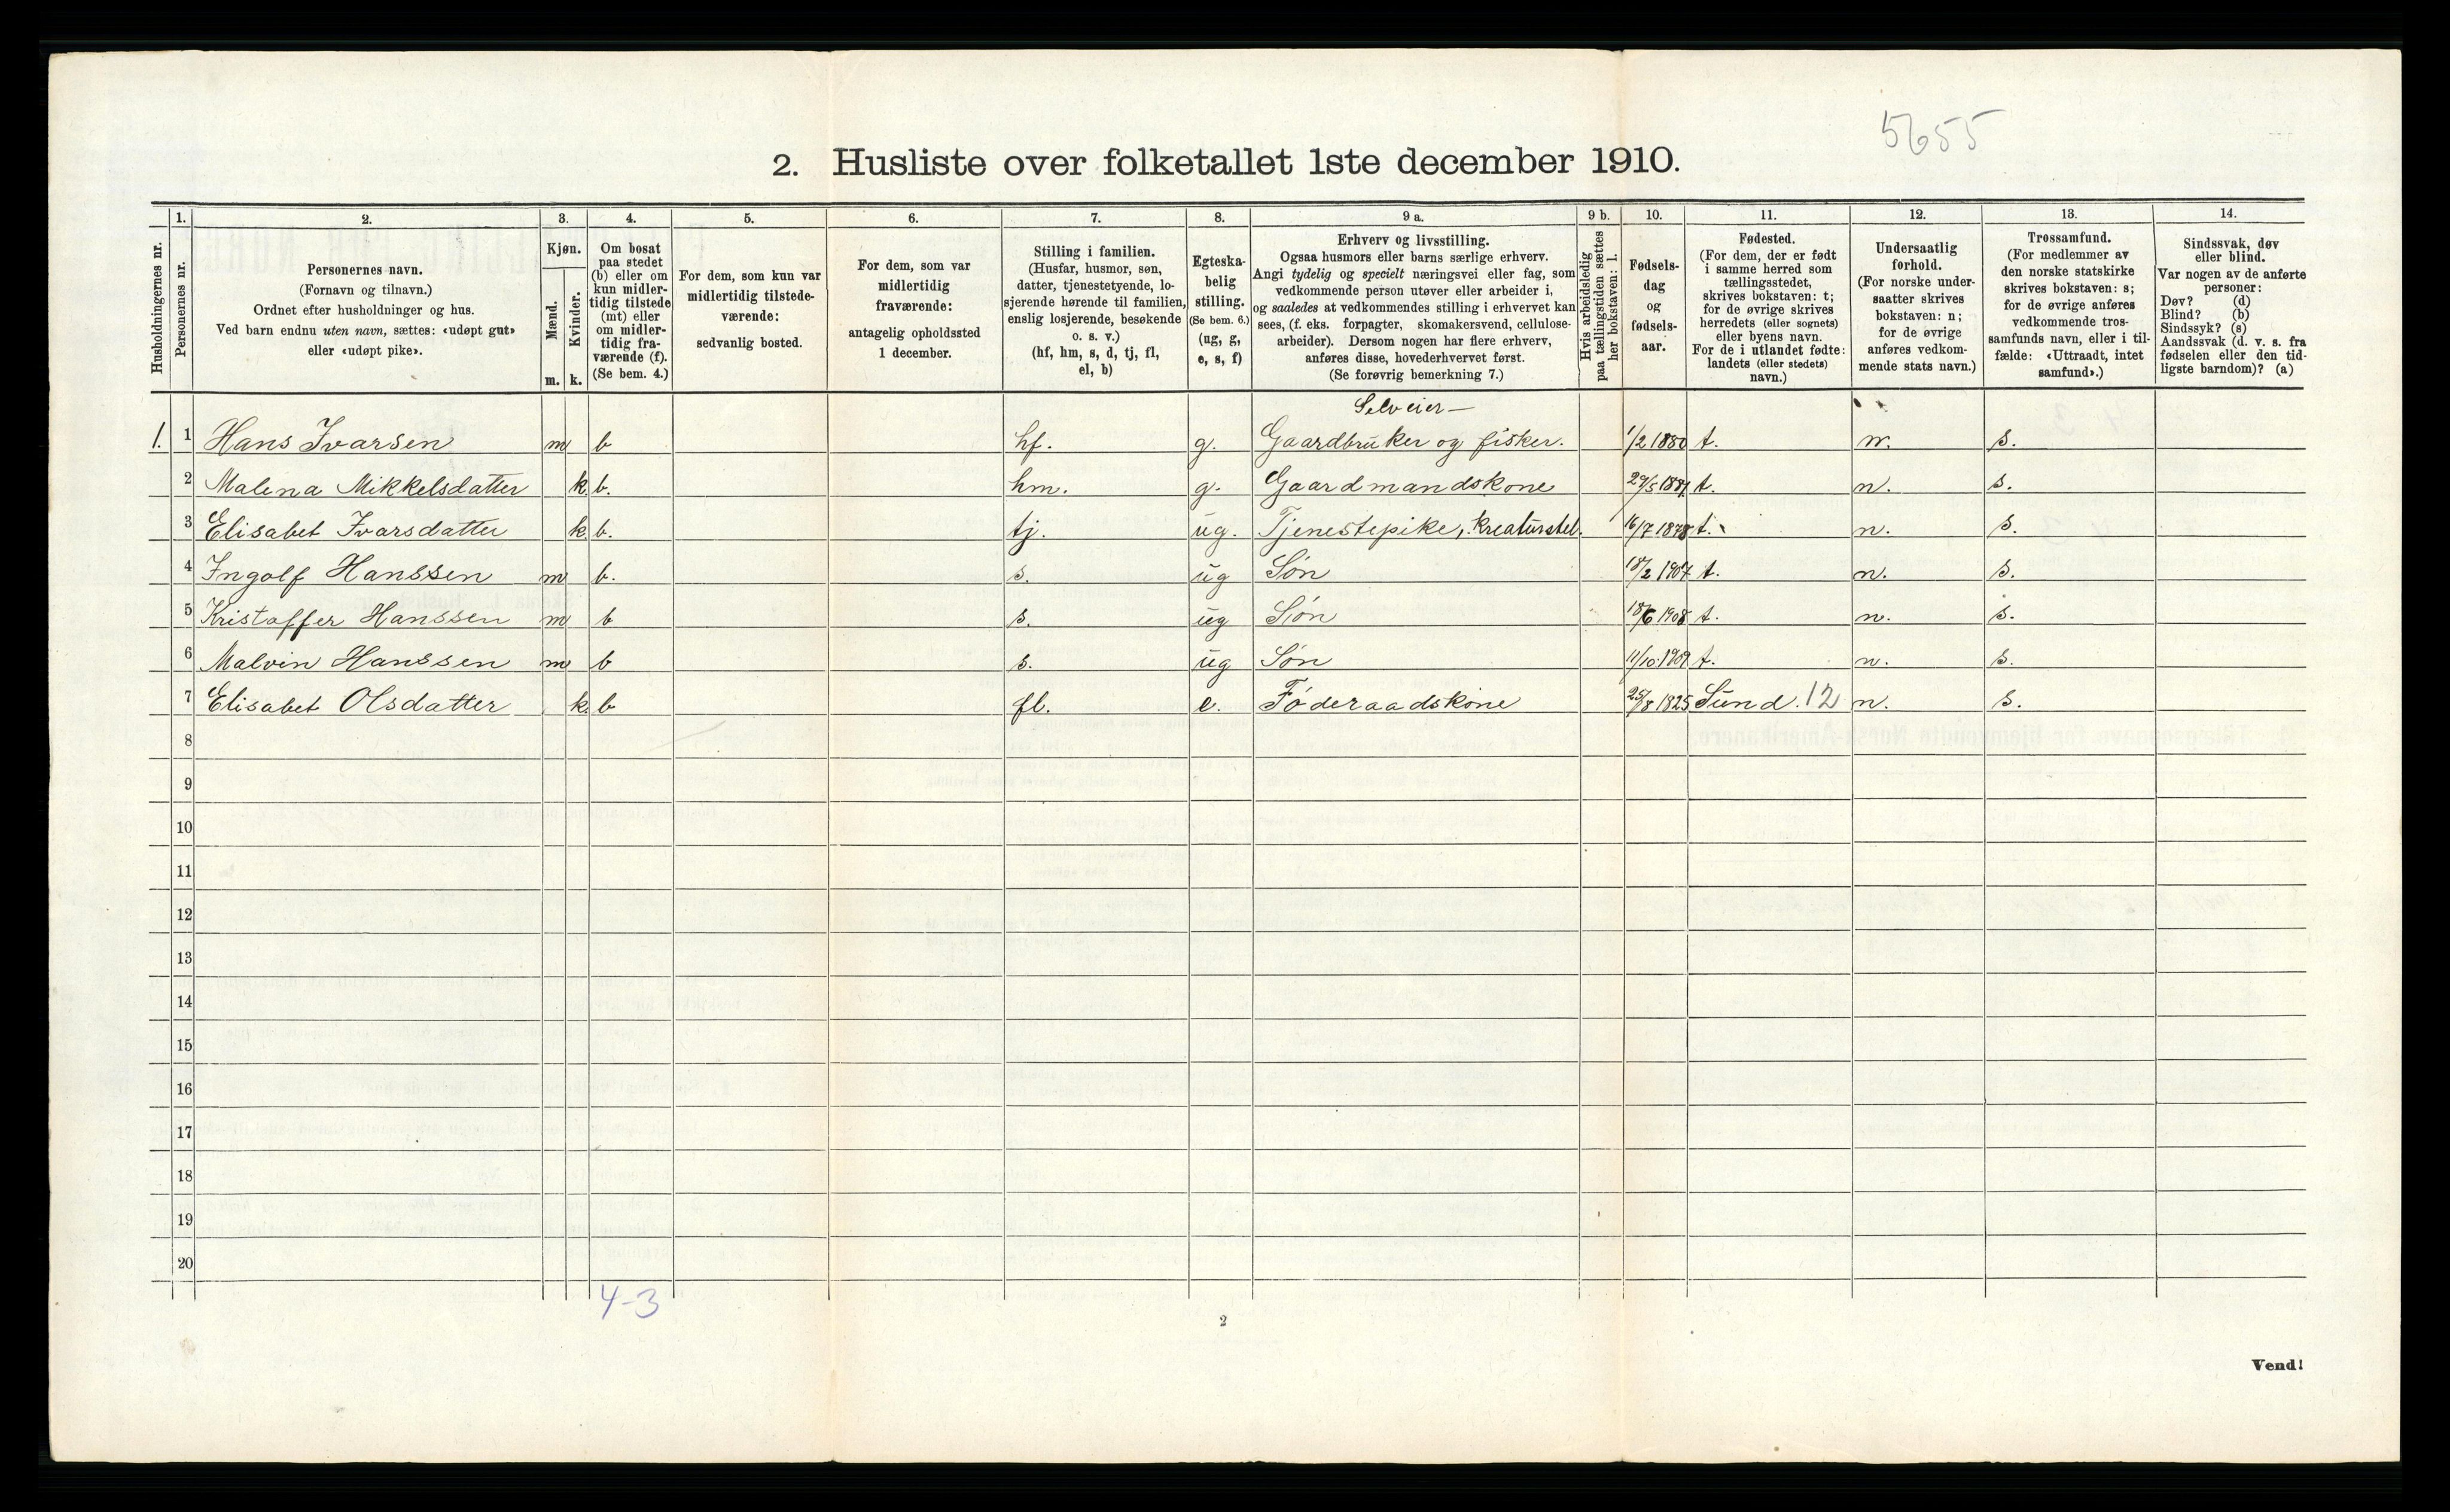 5655
2. Husliste over folketallet 1ste december 1910.
Husholdningernes nr.
1.
Personernes nr.
2.
Personernes navn.
(Fornavn og tilnavn.)
Ordnet efter husholdninger og hus.
Ved barn endnu uten navn, sættes: «udøpt gut»
eller «udøpt pike».
3.
Kjøn.
Mænd.
Kvinder.
m. k.
4.
Om bosat
paa stedet
(b) eller om
kun midler-
tidig tilstede
(mt) eller
om midler-
tidig fra-
værende (f).
(Se bem. 4.)
5.
For dem, som kun var
midlertidig tilstede-
værende:
sedvanlig bosted.
6.
For dem, som var
midlertidig
fraværende:
antagelig opholdssted
1 december.
7.
Stilling i familien.
(Husfar, husmor, søn,
datter, tjenestetyende, lo-
sjerende hørende til familien,
enslig losjerende, besøkende
o. s. v.)
(hf, hm, s, d, tj, fl,
el, b)
8.
Egteska-
belig
stilling.
(Se bem. 6.)
(ug, g,
e, s, f)
9 a.
Erhverv og livsstilling.
Ogsaa husmors eller barns særlige erhverv.
Angi tydelig og specielt næringsvei eller fag, som
vedkommende person utøver eller arbeider i,
og saaledes at vedkommendes stilling i erhvervet kan
sees, (f. eks. forpagter, skomakersvend, cellulose-
arbeider). Dersom nogen har flere erhverv,
anføres disse, hovederhvervet først.
(Se forøvrig bemerkning 7.)
9 b.
Hvis arbeidsledig
paa tællingstiden sættes
her bokstaven: l.
10.
Fødsels-
dag
og
fødsels-
aar.
11.
Fødested.
(For dem, der er født
i samme herred som
tællingsstedet,
skrives bokstaven: t;
for de øvrige skrives
herredets (eller sognets)
eller byens navn.
For de i utlandet fødte:
landets (eller stedets)
navn.)
12.
Undersaatlig
forhold.
(For norske under-
saatter skrives
bokstaven: n;
for de øvrige
anføres vedkom-
mende stats navn.)
13.
Trossamfund.
(For medlemmer av
den norske statskirke
skrives bokstaven: s;
for de øvrige anføres
vedkommende tros-
samfunds navn, eller i til-
fælde: «Uttraadt, intet
samfund».)
14.
Sindssvak, døv
eller blind.
Var nogen av de anførte
personer:
Døv? (d)
Blind? (b)
Sindssyk? (s)
Aandssvak (d. v. s. fra
fødselen eller den tid-
ligste barndom)? (a)
Selveier—
1. 1 Hans Ivarsen m b hf. g. Gaardbruker og fisker. 1/2 1880 t. n. s.
2 Malena Mikkelsdatter k. b. hm. g. Gaardmandskone 29/5 1881 t. n. s.
3 Elisabet Ivarsdatter k. b. tj. ug. Tjenestepike, kreaturstel. 16/7 1878 t. n. s.
4 Ingolf Hanssen m b. s. ug Søn 18/2 1907 t. n. s.
5 Kristoffer Hanssen m b s. ug Søn 18/6 1908 t. n. s.
6 Malvin Hanssen m b s. ug Søn 11/10 1909 t. n. s.
7 Elisabet Olsdatter k. b fl. e. Føderaadskone 25/8 1825 Sund. 12 n. s.
8
9
10
11
12
13
14
15
16
17
18
19
20
4-3
2
Vend!